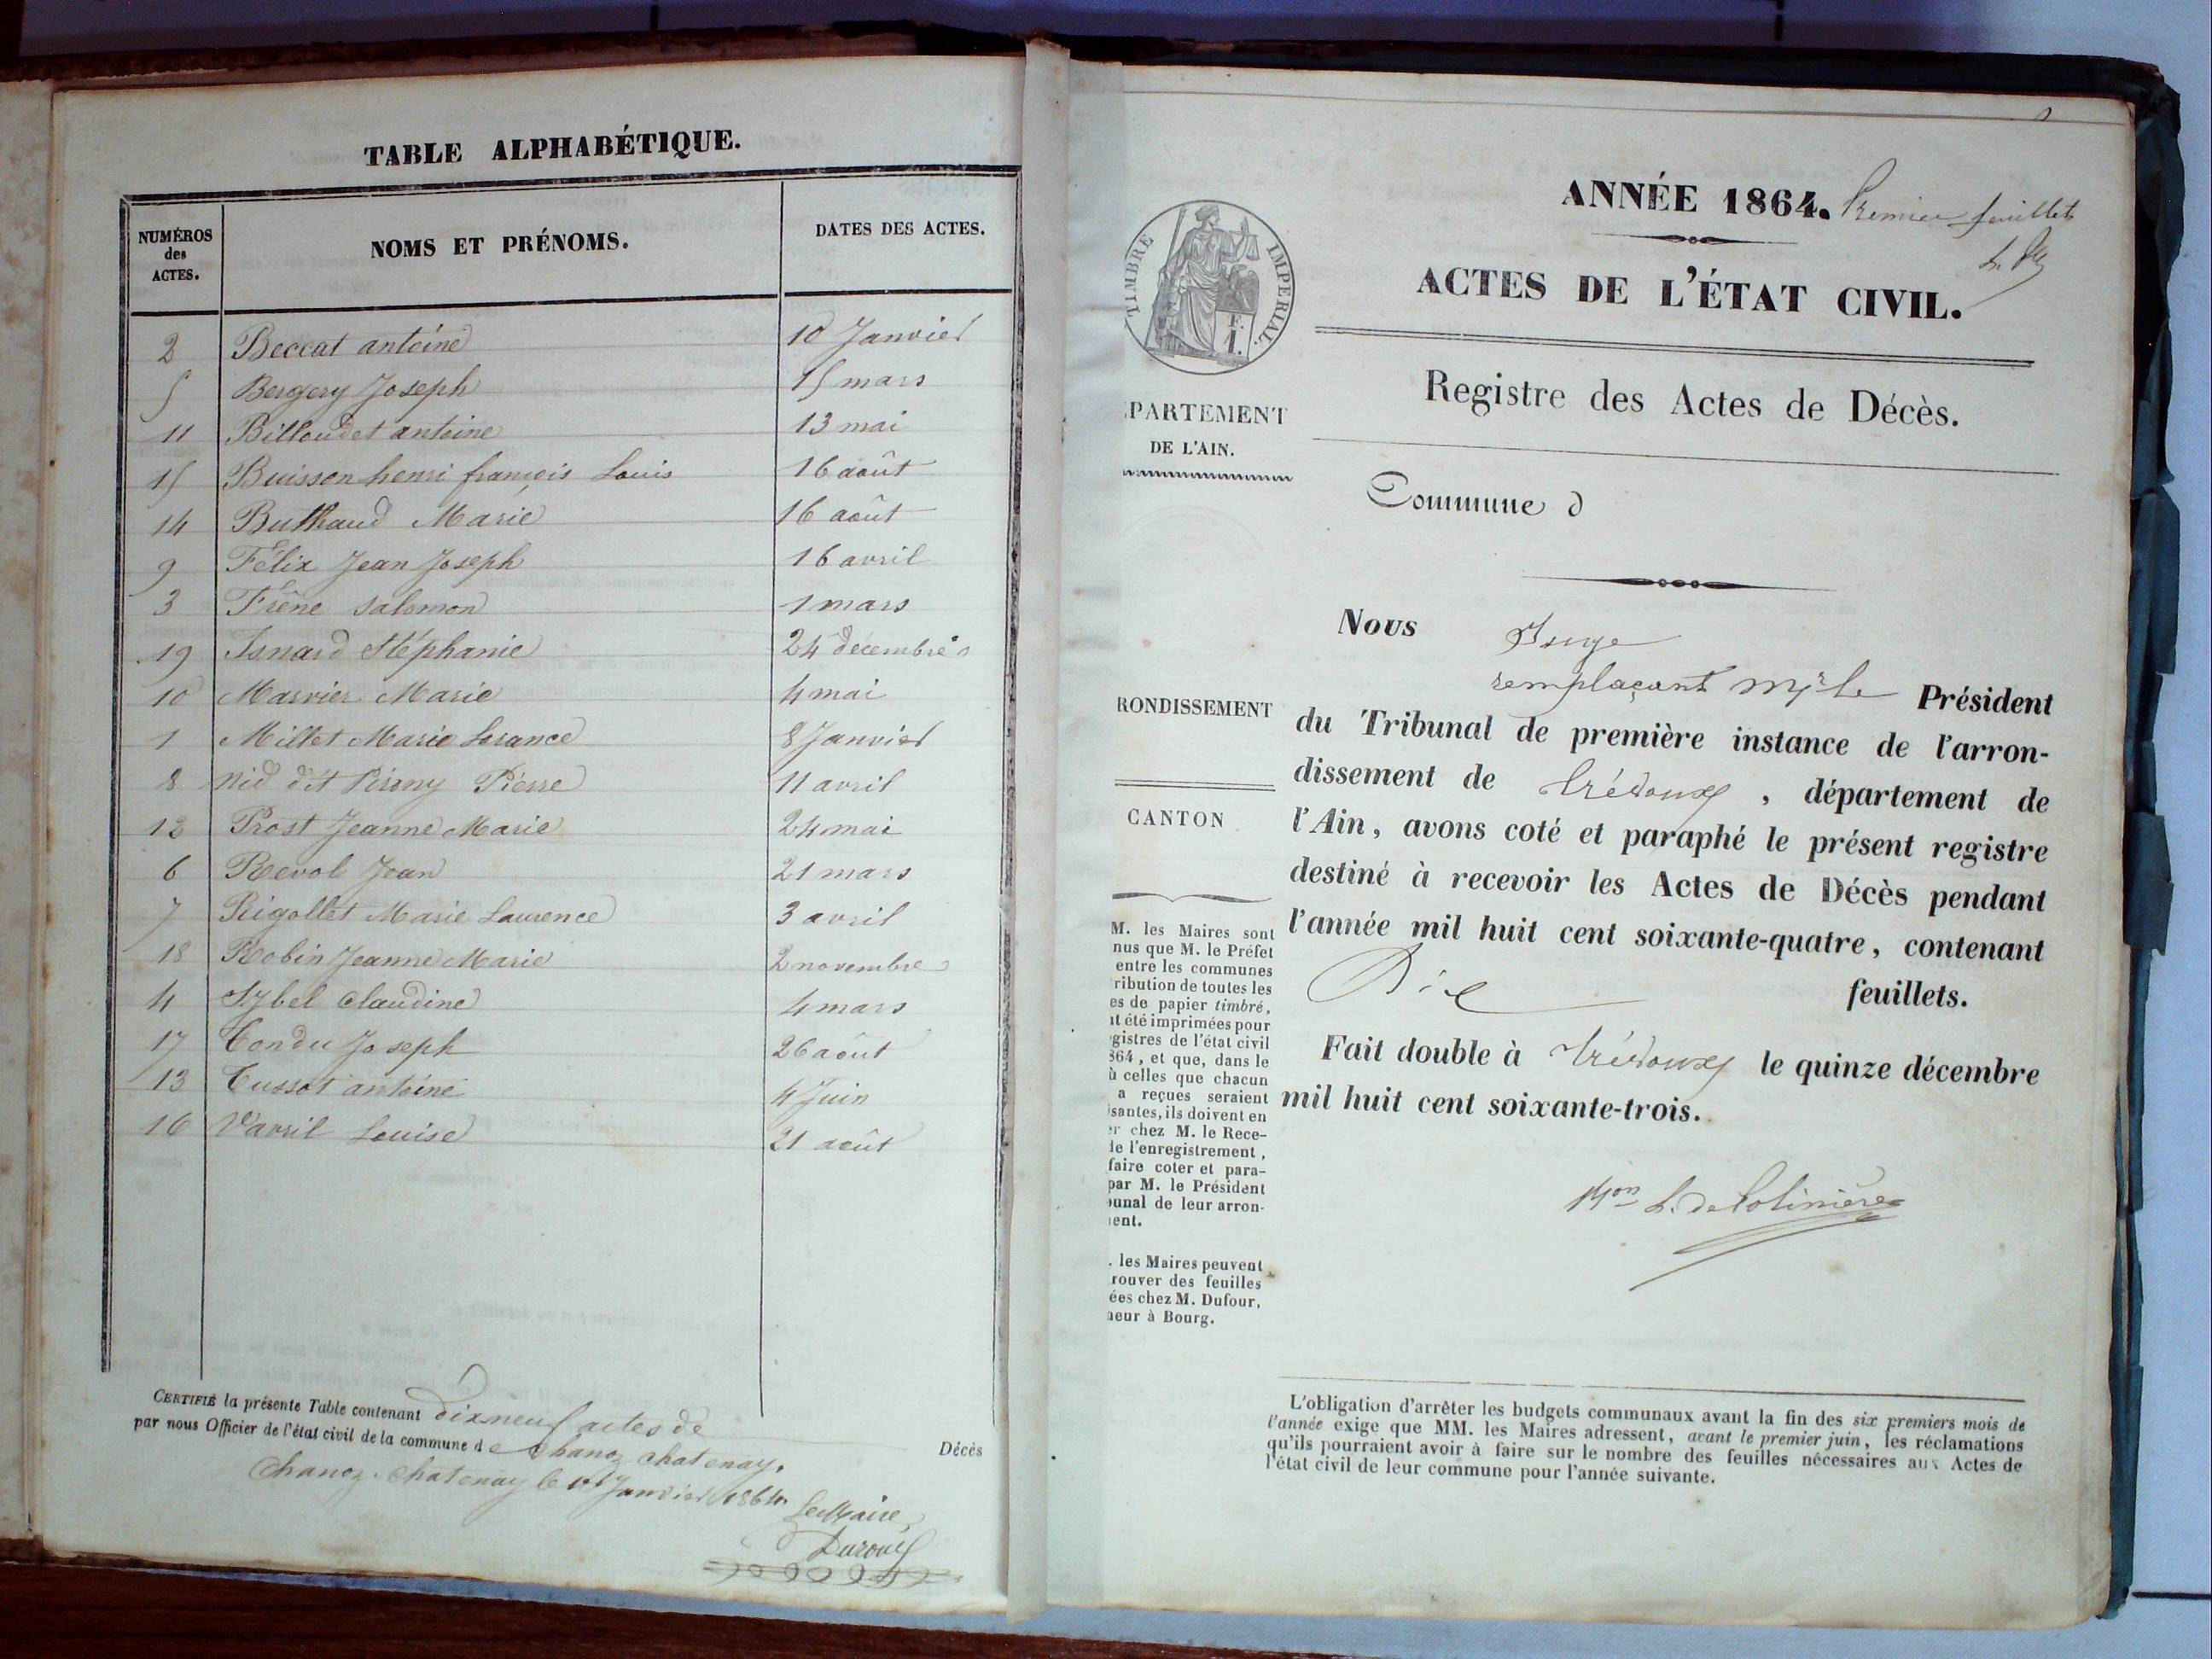 TABLE ALPHABÉTIQUE.
NUMÉROS des ACTES.
NOMS ET PRÉNOMS.
DATES DES ACTES.
2 Beccat antoine 10 Janvier
5 Bergery Joseph 15 mars
11 Billoudet antoine 13 mai
15 Buisson henri françois Louis 16 août
14 Buthaud Marie 16 août
9 Félix Jean Joseph 16 avril
3 Frêne Salomon 1 mars
19 Isnard Stéphanie 24 décembre
10 Marvier Marie 4 mai
1 Millet Marie Lorance 8 Janvier
8 Nid dit Pirony Pierre 11 avril
12 Prost Jeanne Marie 24 mai
6 Revol Jean 21 mars
7 Rigollet Marie Laurence 3 avril
18 Robin Jeanne Marie 2 novembre
4 Sybel Claudine 4 mars
17 Tondu Joseph 26 août
13 Tussot antoine 4 Juin
16 Vavril Louise 21 août
CERTIFIÉ la présente Table contenant dix neuf actes de Décès
par nous Officier de l'état civil de la commune de Chanoz chatenay.
Chanoz-Chatenay le 1er Janvier 1864.
Le Maire,
ANNÉE 1864. Premier feuillet
ACTES DE L'ÉTAT CIVIL.
TIMBRE IMPERIAL.
F. 1.
Registre des Actes de Décès.
PARTEMENT
DE L'AIN.
Commune d
Nous Juge
remplaçant Mr le Président
RONDISSEMENT
du Tribunal de première instance de l'arron-
dissement de Trévoux, département de
CANTON
l'Ain, avons coté et paraphé le présent registre
destiné à recevoir les Actes de Décès pendant
l'année mil huit cent soixante-quatre, contenant
Dix feuillets.
Fait double à Trévoux le quinze décembre
mil huit cent soixante-trois.
M. les Maires sont
nus que M. le Préfet
entre les communes
ribution de toutes les
es de papier timbré,
nt été imprimées pour
gistres de l'état civil
864, et que, dans le
ù celles que chacun
a reçues seraient
isantes, ils doivent en
er chez M. le Rece-
de l'enregistrement,
faire coter et para-
par M. le Président
bunal de leur arron-
ent.
. les Maires peuvent
rouver des feuilles
ées chez M. Dufour,
neur à Bourg.
L'obligation d'arrêter les budgets communaux avant la fin des six premiers mois de
l'année exige que MM. les Maires adressent, avant le premier juin, les réclamations
qu'ils pourraient avoir à faire sur le nombre des feuilles nécessaires aux Actes de
l'état civil de leur commune pour l'année suivante.